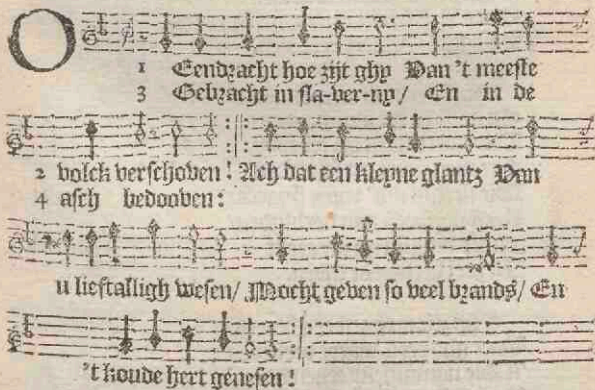 O
1 Eendracht hoe zijt ghy Van 't meeste
3 Gebracht in sla-ver-ny / En in de
2 volck verschoven! Ach dat een kleyne glantz Van
4 asch bedooven:
u lieftalligh wesen / Mocht geven so veel brands / En
't koude hert genesen!